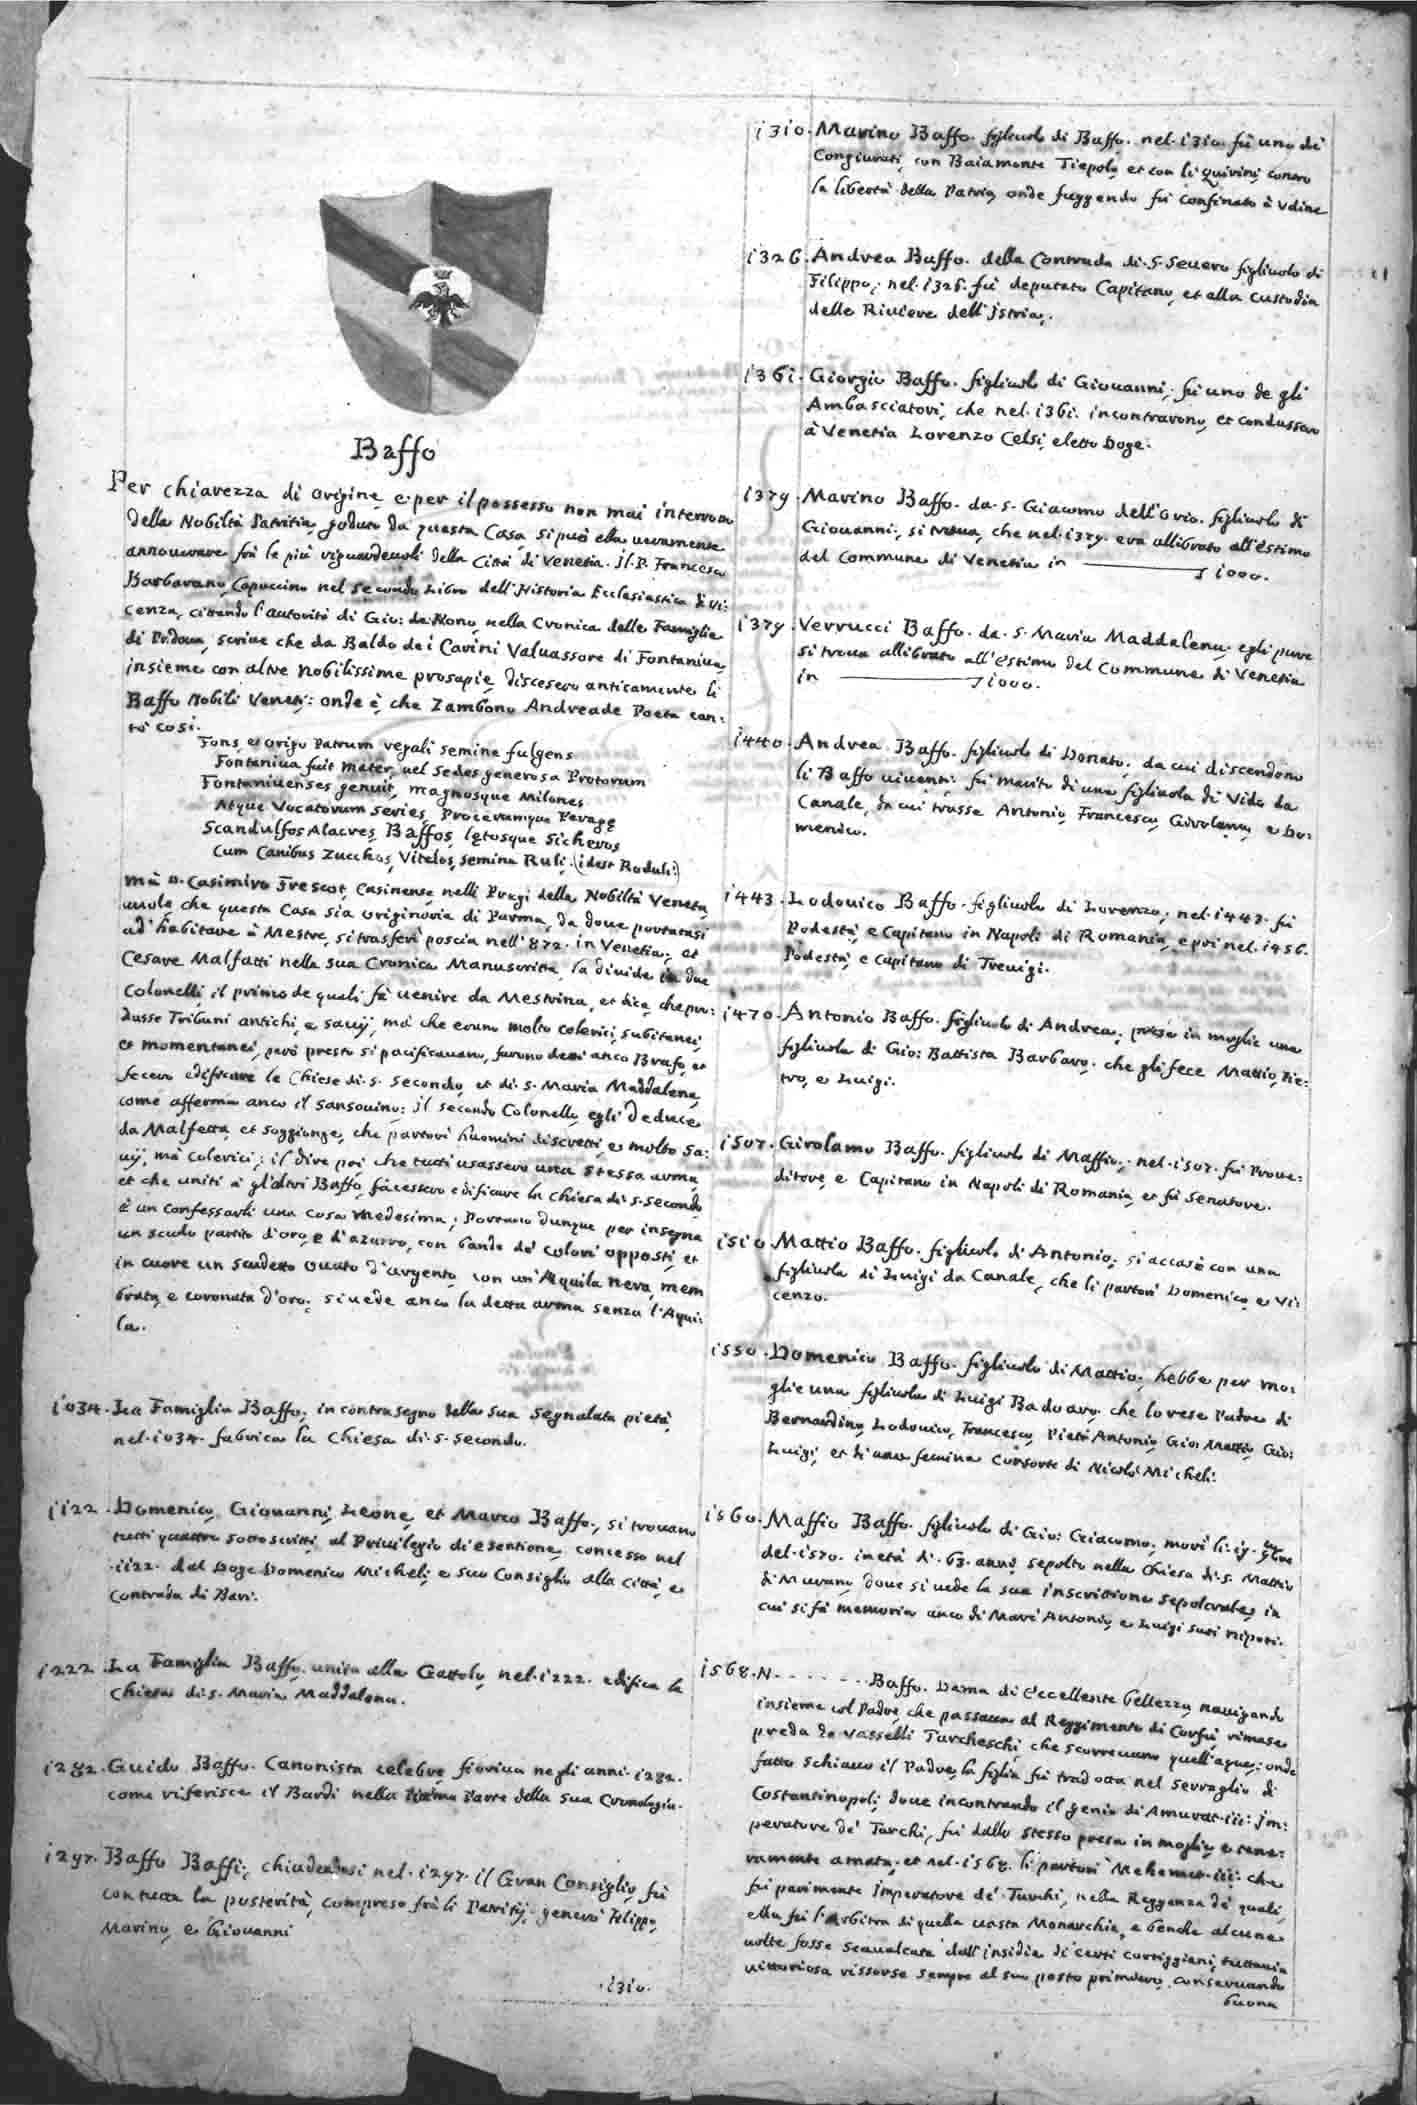 Baffo
Per chiarezza di origine, e per il possesso non mai interrotto
della Nobiltà Patritia, goduto da questa Casa si può ella veramente
annoverare frà le più riguardevoli della Città di Venetia. Il P. Francesco
Barbarano Capuccino nel secondo Libro dell'Historia Ecclesiastica di Vi:
cenza, cittando l'autorità di Gio: da Nono, nella Cronica delle Famiglie
di Padoua, scriue che da Baldo de i Carini Valuassore di Fontaniua,
insieme con altre nobilissime prosapie, discesero anticamente li
Baffo Nobili Veneti: onde è, che Zambono Andreade Poeta can:
tò così.
Fons, et origo Patrum regali semine fulgens
Fontaniua fuit mater, uel sedes generosa Protorum
Fontaniuenses genuit, magnosque Milones
Atque Vocatorum series, Proceramque Peragę
Scandulfos Alacres, Baffos, lętosque Sicheros
Cum Canibus Zucchos, Vitelos, semina Ruli. (idest Roduli:)
Mà D. Casimiro Frescot, Casinense, nelli Pregi della Nobiltà Veneta,
uuole che questa Casa sia originaria di Parma, da doue portatasi
ad habitare à Mestre, si trasferì poscia nell' 872. in Venetia; et
Cesare Malfatti nella sua Cronica Manuscritta la diuide in due
Colonelli, il primo de quali fà uenire da Mestrina, et dice, che pro:
dusse Tribuni antichi, e sauij, mà che erano molto colerici, subitanei,
et momentanei, però presto si pacificauano, furono detti anco Brafo, et
fecero edificare le Chiese di S. Secondo, et di S. Maria Maddalena,
come afferma anco il Sansouino: il secondo Colonello, egli deduce
da Malfetta, et soggionge, che partorì huomini discretti, e molto sa:
uij, mà colerici; il dire poi che tutti usassero una stessa arma,
et che uniti à gl'altri Baffo, facessero edificare la Chiesa di S. Secondo,
è un confessarli una cosa medesima; Portano dunque per insegna
un scudo partito d'oro, e d'azurro, con bande de' colori opposti, et
in cuore un scudetto ouato d'argento, con un'Aquila nera, mem
brata, e coronata d'oro; si uede anco la detta arma senza l'Aqui:
la.
1034. La Famiglia Baffo, in contrasegno della sua segnalata pietà,
nel. 1034. fabrica la Chiesa di S. Secondo.
1122. Domenico, Giouanni, Leone, et Marco Baffo, si trouano
tutti quattro sottoscritti al Priuilegio di esentione, concesso nel
.1122. dal Doge Domenico Micheli, e suo Consiglio alla Città, e
Contrada di Bari.
1222. La Famiglia Baffo, unita alla Gattolo, nel. 1222. edifica la
Chiesa di S. Maria Maddalena.
1282. Guido Baffo. Canonista celebre, fioriua negli anni. 1282.
come riferisce il Bardi nella Parte della sua Cronologia.
1297. Baffo Baffi, chiudendosi nel. 1297. il Gran Consiglio, fù
con tutta la posterità, compreso frà li Patritij, generò Filippo,
Marino, e Giouanni
.1310.
1310. Marino Baffo. figliuolo di Baffo. nel. 1310. fù uno dei
Congiurati, con Baiamonte Tiepolo, et con li Quirini, contro
la libertà della Patria, onde fuggendo fù confinato à Udine
1326. Andrea Baffo. della Contrada di S. Seuero figliuolo di
Filippo, nel. 1326. fù deputato Capitano, et alla custodia
delle Riuiere dell'Istria.
1361. Giorgio Baffo. figliuolo di Giouanni, fù uno de gli
Ambasciatori, che nel. 1361. incontrarono, et condussero
à Venetia Lorenzo Celsi, eletto Doge.
1379. Marino Baffo. da. S. Giacomo dell'Orio. figliuolo di
Giouanni, si troua, che nel. 1379. era allibrato all'estimo
del Commune di Venetia in 1000.
1379. Verrucci Baffo. da. S. Maria Maddalena. egli pure
si troua allibrato all'estimo del Commune di Venetia
in 1000.
1440. Andrea Baffo. figliuolo di Donato, da cui discendono
li Baffo uiuenti: fù marito di una figliuola di Vido da
Canale, da cui trasse Antonio, Francesco, Girolamo, e Do:
menico.
1443. Lodouico Baffo. figliuolo di Lorenzo, nel. 1443. fù
Podestà, e Capitano in Napoli di Romania, e poi nel. 1456.
Podestà, e Capitano di Treuigi.
1470. Antonio Baffo. figliuolo di Andrea, prese in moglie una
figliuola di Gio: Battista Barbaro. che gli fece Mattio, Pie:
tro, e Luigi.
1507. Girolamo Baffo. figliuolo di Maffio, nel. 1507. fù Proue:
ditore, e Capitano in Napoli di Romania, et fù Senatore.
1510. Mattio Baffo. figliuolo di Antonio, si accasò con una
figliuola di Luigi da Canale, che li partorì Domenico, e Vi:
cenzo.
1550. Domenico Baffo. figliuolo di Mattio, hebbe per mo:
glie una figliuola di Luigi Badoaro, che lo rese Padre di
Bernardino, Lodouico, Francesco, Pietr'Antonio, Gio: Mattio, Gio:
Luigi, et di una femina Consorte di Nicolò Micheli.
1560. Maffio Baffo. figliuolo di Gio: Giacomo, morì li. 15.
del. 1570. in età di. 63. anni, sepolto nella Chiesa di S. Mattio
di Murano, doue si uede la sua inscrittione sepolcrale, in
cui si fà memoria anco di Marc'Antonio, e Luigi suoi nipoti.
1568. N. . . . . . . Baffo. Dama di eccellente bellezza, nauigando
insieme col Padre, che passaua al Reggimento di Corfù, rimase
preda de Vasselli Turcheschi che scorreuano quell'aque; onde
fatto schiauo il Padre, la figlia fù tradotta nel Serraglio di
Costantinopoli, doue incontrando il genio di Amurat. iii: Im:
peratore de' Turchi, fù dallo stesso presa in moglie, e tene:
ramente amata, et nel. 1568. li partorì Mehemet. iii: che
fù parimente Imperatore de' Turchi, nella Reggenza de' quali,
ella fù l'Arbitra di quella uasta Monarchia, e benche alcune
uolte fosse scaualcata dall'insidie di certi cortiggiani, tuttauia
uittoriosa rissorse sempre al suo posto primiero, conseruando
buona